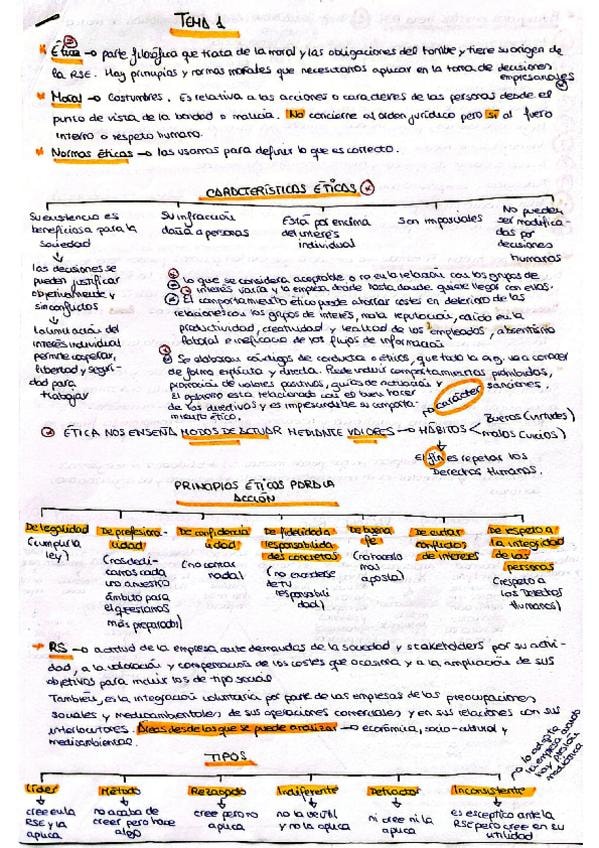 TEMA 1
Ética → parte filosófica que trata de la moral y las obligaciones del hombre y tiene su origen de
la RSE. Hay principios y normas morales que necesitamos aplicar en la toma de decisiones
empresariales
Moral → Costumbres. Es relativa a las acciones o caracteres de las personas desde el
punto de vista de la bondad o malicia. No concierne al orden jurídico pero sí al fuero
interno o respeto humano.
Normas éticas → las usamos para definir lo que es correcto.
CARACTERÍSTICAS ÉTICAS
Su existencia es
beneficiosa para la
sociedad
Su infracción
daña a personas
Está por encima
del interés
individual
Son imparciales
No pueden
ser modifica-
das por
decisiones
humanas
las decisiones se
pueden justificar
objetivamente y
sin conflictos
la limitación del
interés individual
permite cooperar,
libertad y seguri-
dad para
trabajar
Lo que se considera aceptable o no en la relación con los grupos de
interés varía y la empresa decide hasta donde quiere llegar con ellos.
El comportamiento ético puede ahorrar costes en deterioro de las
relaciones con los grupos de interés, mala reputación, caída en la
productividad, creatividad y lealtad de los empleados, absentismo
laboral e ineficacia de los flujos de información
Se elaboran códigos de conducta o éticos, que toda la org. va a conocer
de forma explícita y directa. Puede incluir comportamientos prohibidos,
promoción de valores positivos, guías de actuación y sanciones.
El gobierno esta relacionado con el buen hacer
de los directivos y es imprescindible su comporta-
miento ético.
carácter
ÉTICA NOS ENSEÑA MODOS DE ACTUAR MEDIANTE VALORES → HÁBITOS
Buenos (virtudes)
malos (vicios)
El fin es respetar los
Derechos Humanos.
PRINCIPIOS ÉTICOS PARA LA
ACCIÓN
De legalidad
(cumplir la
ley)
De profesiona-
lidad
(nos dedi-
camos cada
uno a nuestro
ámbito para
el que estamos
más preparados)
De confidencia
lidad
(no contar
nada)
De fidelidad a
responsabilida
des concretas
(no excederse
de tu
responsabili
dad)
De buena
fe
(no hacerlo
mal
aposta)
De evitar
conflictos
de intereses
De respeto a
la integridad
de las
personas
(respeto a
los Derechos
Humanos)
RS → actitud de la empresa ante demandas de la sociedad y stakeholders por su activi-
dad, a la valoración y compensación de los costes que ocasiona y a la ampliación de sus
objetivos para incluir los de tipo social
También, es la integración voluntaria por parte de las empresas de las preocupaciones
sociales y medioambientales de sus operaciones comerciales y en sus relaciones con sus
interlocutores. Áreas desde las que se puede analizar → económica, socio-cultural y
medioambiental.
lo adopta
la empresa cuando
hay presión
mediática
TIPOS
Líder
cree en la
RSE y la
aplica
Método
no acaba de
creer pero hace
algo
Rezagado
cree pero no
aplica
Indiferente
no la ve útil
y no la aplica
Detractor
ni cree ni la
aplica
Inconsistente
es escéptico ante la
RSE pero cree en su
utilidad